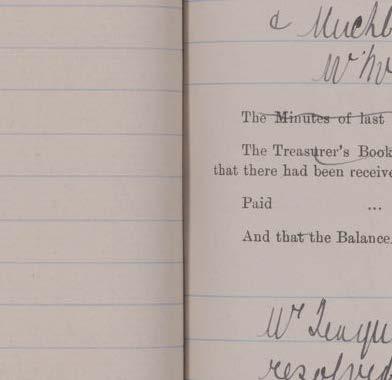 & Muchl
Mr W
The Minutes of last
The Treasurer's Book
that there had been receive
Paid ...
And that the Balance.
Mr Teaqu
resolved